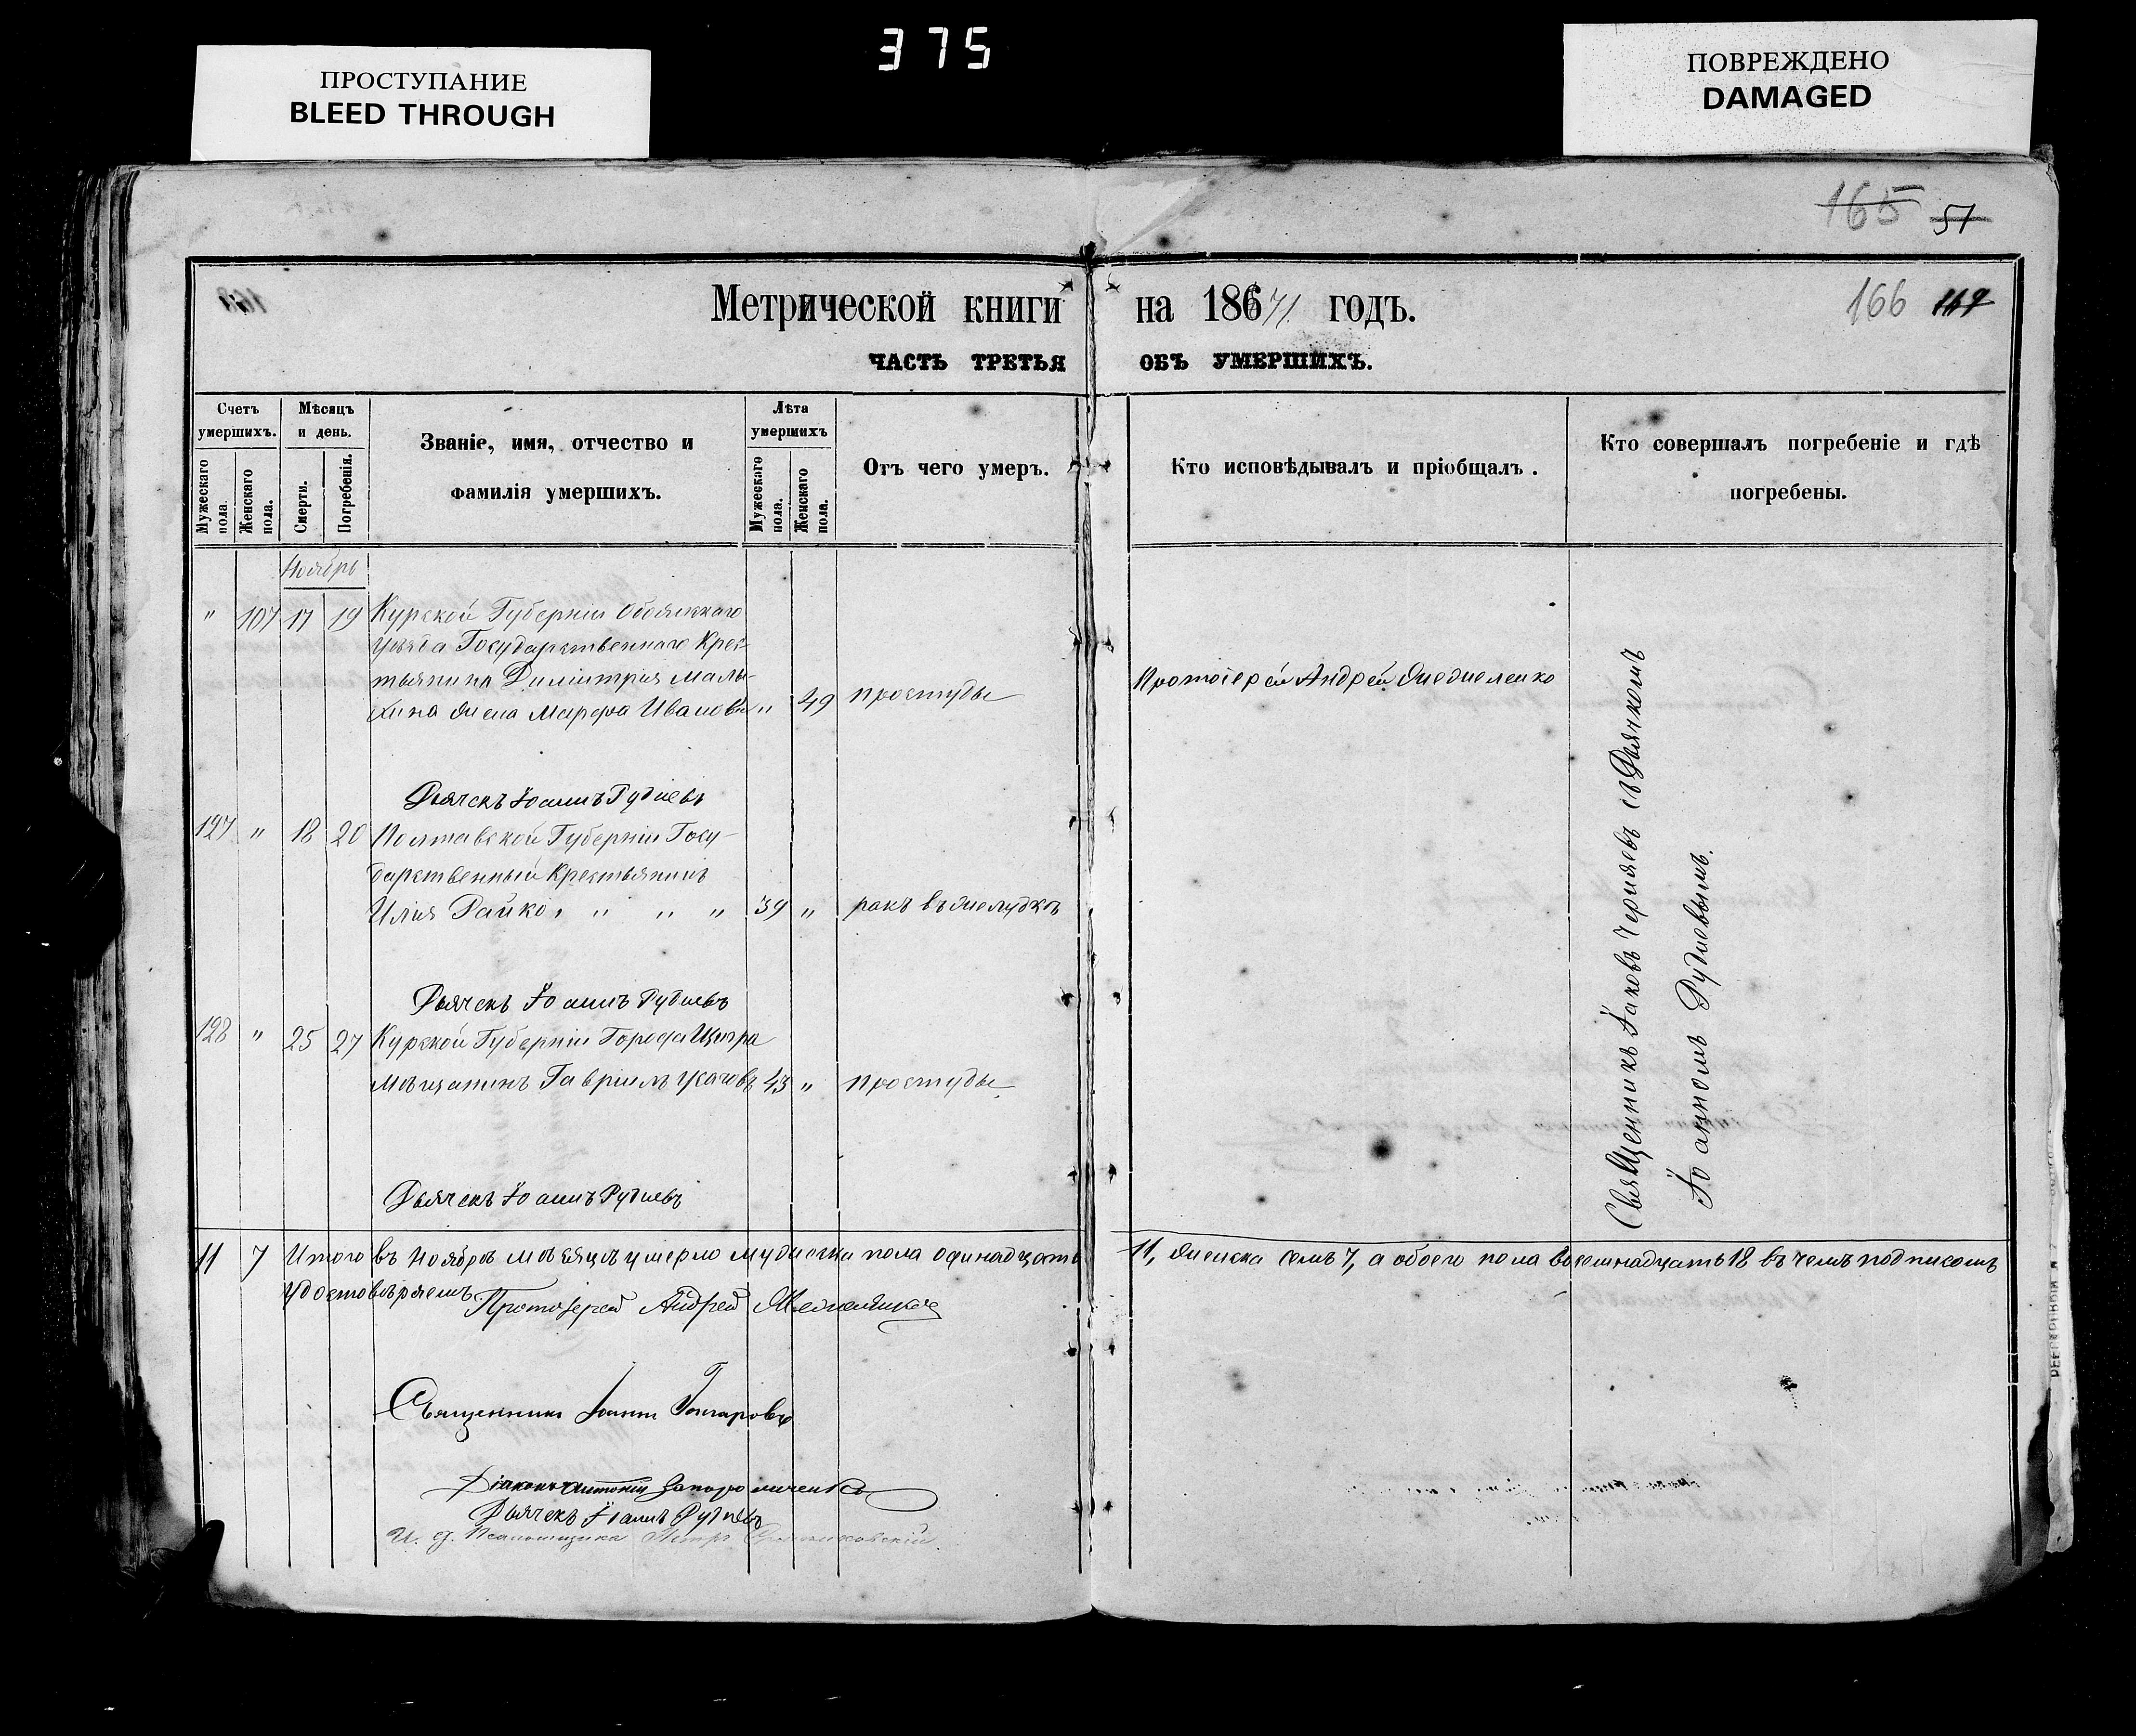 375
ПРОСТУПАНИЕ
BLEED THROUGH
ПОВРЕЖДЕНО
DAMAGED
165 51
Метрической книги на 186 71 годъ.
166
ЧАСТЬ ТРЕТЬЯ ОБЪ УМЕРШИХЪ.
Счетъ умершихъ.
Мужескаго пола.
Женскаго пола.
Мѣсяцъ и день.
Смерти.
Погребенія.
Званіе, имя, отчество и
фамилія умершихъ.
Лѣта умершихъ
Мужескаго пола.
Женскаго пола.
Отъ чего умеръ.
Кто исповѣдывалъ и пріобщалъ.
Кто совершалъ погребеніе и гдѣ
погребены.
Ноябрь
" 107 17 19 Курской Губерніи Обоянскаго
Уѣзда Государственнаго Крес-
тьянина Димитрия Малы-
хина жена Марфа Иванов " 49 простуды
Протоіерей Андрей
Дьячекъ Іоаннъ Рудневъ
127 " 18 20 Полтавской Губерніи Госу-
дарственный Крестьянинъ
Илия Райко " " " " 39 " ракъ въ желудкѣ
Дьячекъ Іоаннъ Рудневъ
128 " 25 27 Курской Губерніи Города Щигра
Мѣщанинъ Гавріилъ Усачовъ 43 " простуды
Дьячекъ Іоаннъ Рудневъ
Священникъ Іаковъ Черняевъ съ Дьячкомъ
Іоанномъ Рудневымъ.
11 7 Итого въ Ноябрѣ мѣсяцѣ умерло мужеска пола одинадцать 11, женска семь 7, а обоего пола восемнадцать 18 въ чемъ подписомъ
удостовѣряемъ. Протоіерей Андрей
Священникъ Іоаннъ Гончаровъ
Діаконъ Антоній
Дьячекъ Іоаннъ Рудневъ
И. д. Псаломщика Петръ